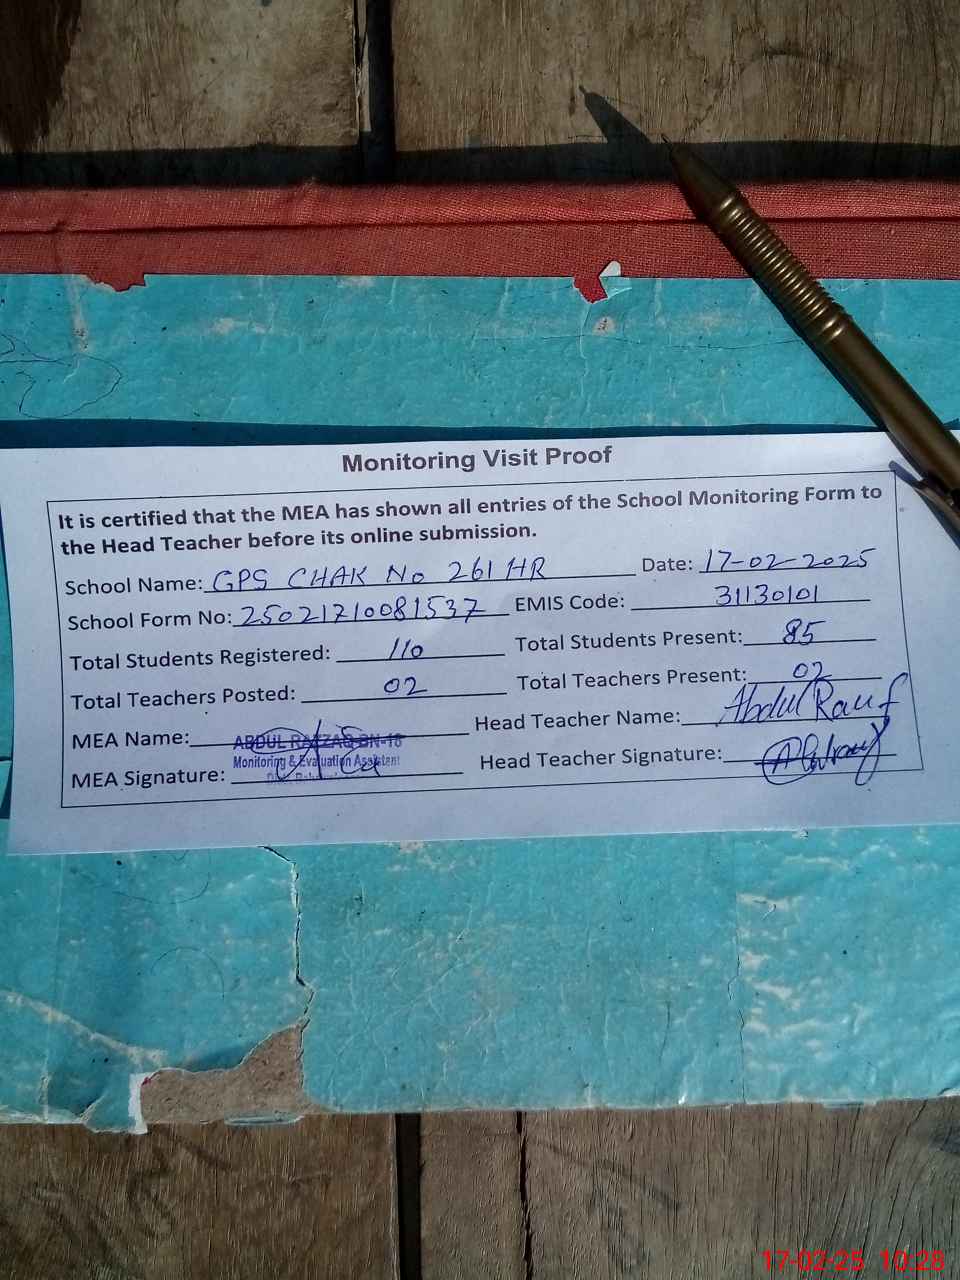 Monitoring Visit Proof
It is certified that the MEA has shown all entries of the School Monitoring Form to
the Head Teacher before its online submission.
School Name: GPS CHAK No 261 HR Date: 17-02-2025
School Form No: 25021710081537 EMIS Code: 31130101
Total Students Registered: 110 Total Students Present: 85
Total Teachers Posted: 02 Total Teachers Present: 02
MEA Name: ABDUL RAZZAQ BN-16 Head Teacher Name: Abdul Rauf
Monitoring & Evaluation Assistent
MEA Signature: Head Teacher Signature:
17-02-25 10:28